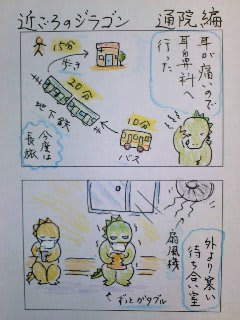 近ごろのジラゴン 通院編
耳が痛いので
耳鼻科へ
行った
15分
歩き
20分
地下鉄
10分
バス
今度は
長旅
外より寒い
待ち合い室
扇風機
ずっとガタブル